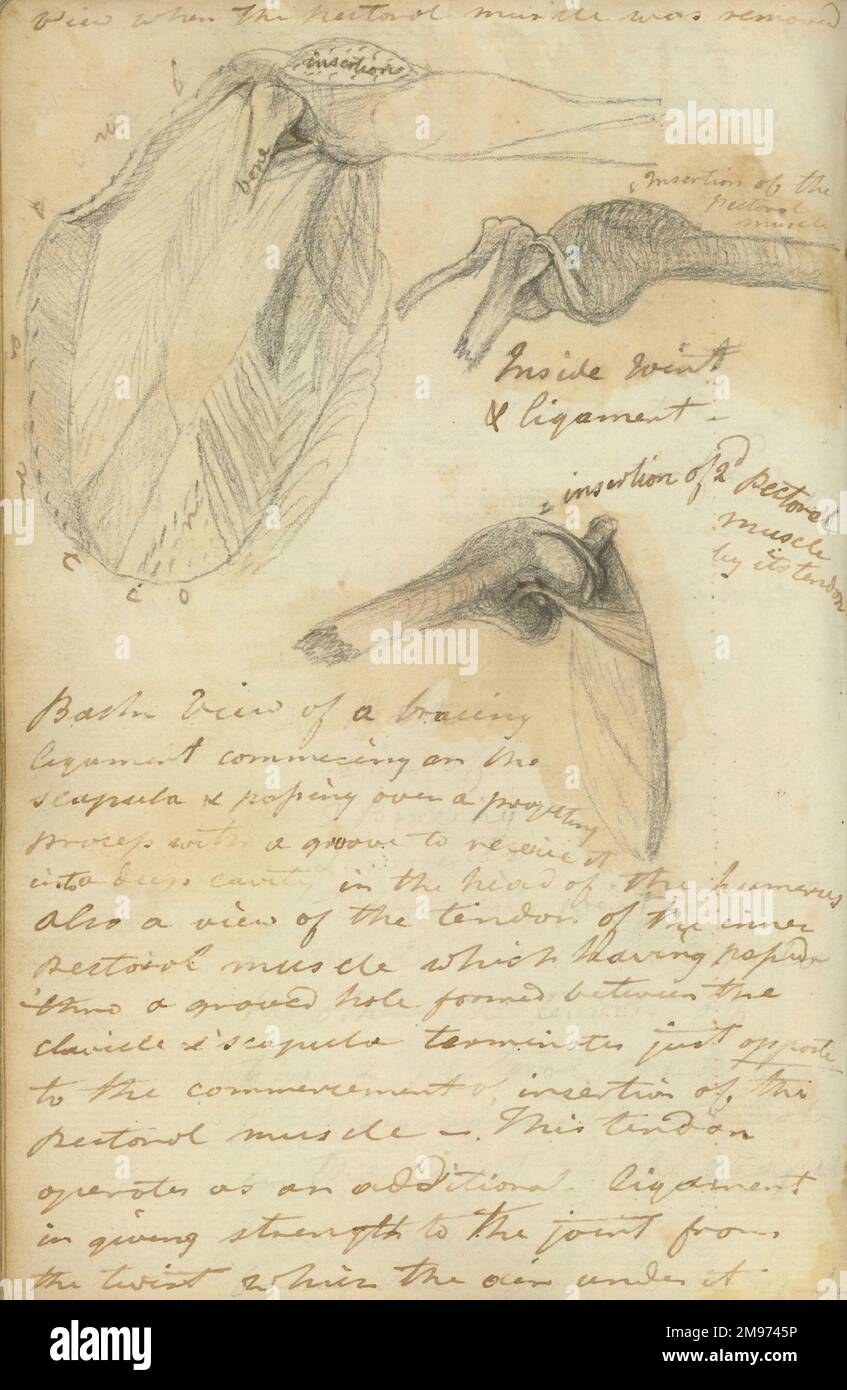 View when the pectoral muscle was removed
insertion
bone
insertion of the
pectoral
muscle
Inside joint
& ligament -
= insertion of 2d pectoral
muscle
by its tendon
View of a bracing
ligament commecing on the
scapula & paſsing over a projecting
proceſs with a groove to receive it
into a deep cavity in the head of the humerus
also a view of the tendon of the inner
pectoral muscle which having paſsed
thro a grooved hole formed between the
clavicle & scapula terminates just opposite
to the commencement of insertion of the
pectoral muscle -. This tendon
operates as an additional ligament
in giving strength to the joint from
the twist which the air under it
alamy
Image ID: 2M9745P
www.alamy.com